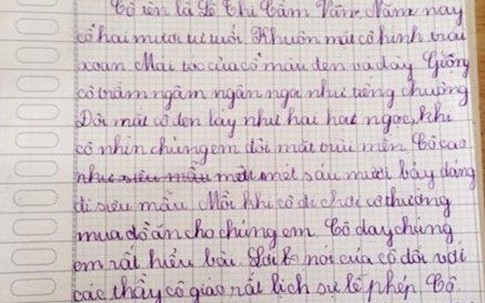 Cô tên là Lê Thị Cẩm Vân. Năm nay
cô hai mươi tư tuổi. Khuôn mặt cô hình trái
xoan. Mái tóc của cô màu đen và dày. Giọng
cô trầm ngâm ngân nga như tiếng chuông
Đôi mắt cô đen láy như hai hạt ngọc, khi
cô nhìn chúng em đôi mắt trùi mền. Cô cao
như siêu mẫu một mét sáu mươi bảy dáng
đi siêu mẫu. Mỗi khi cô đi chơi cô thường
mua đồ ăn cho chúng em. Cô dạy chúng
em rất hiểu bài. nói của cô đối với
các thầy cô giáo rất lịch sự lễ phép. Cô